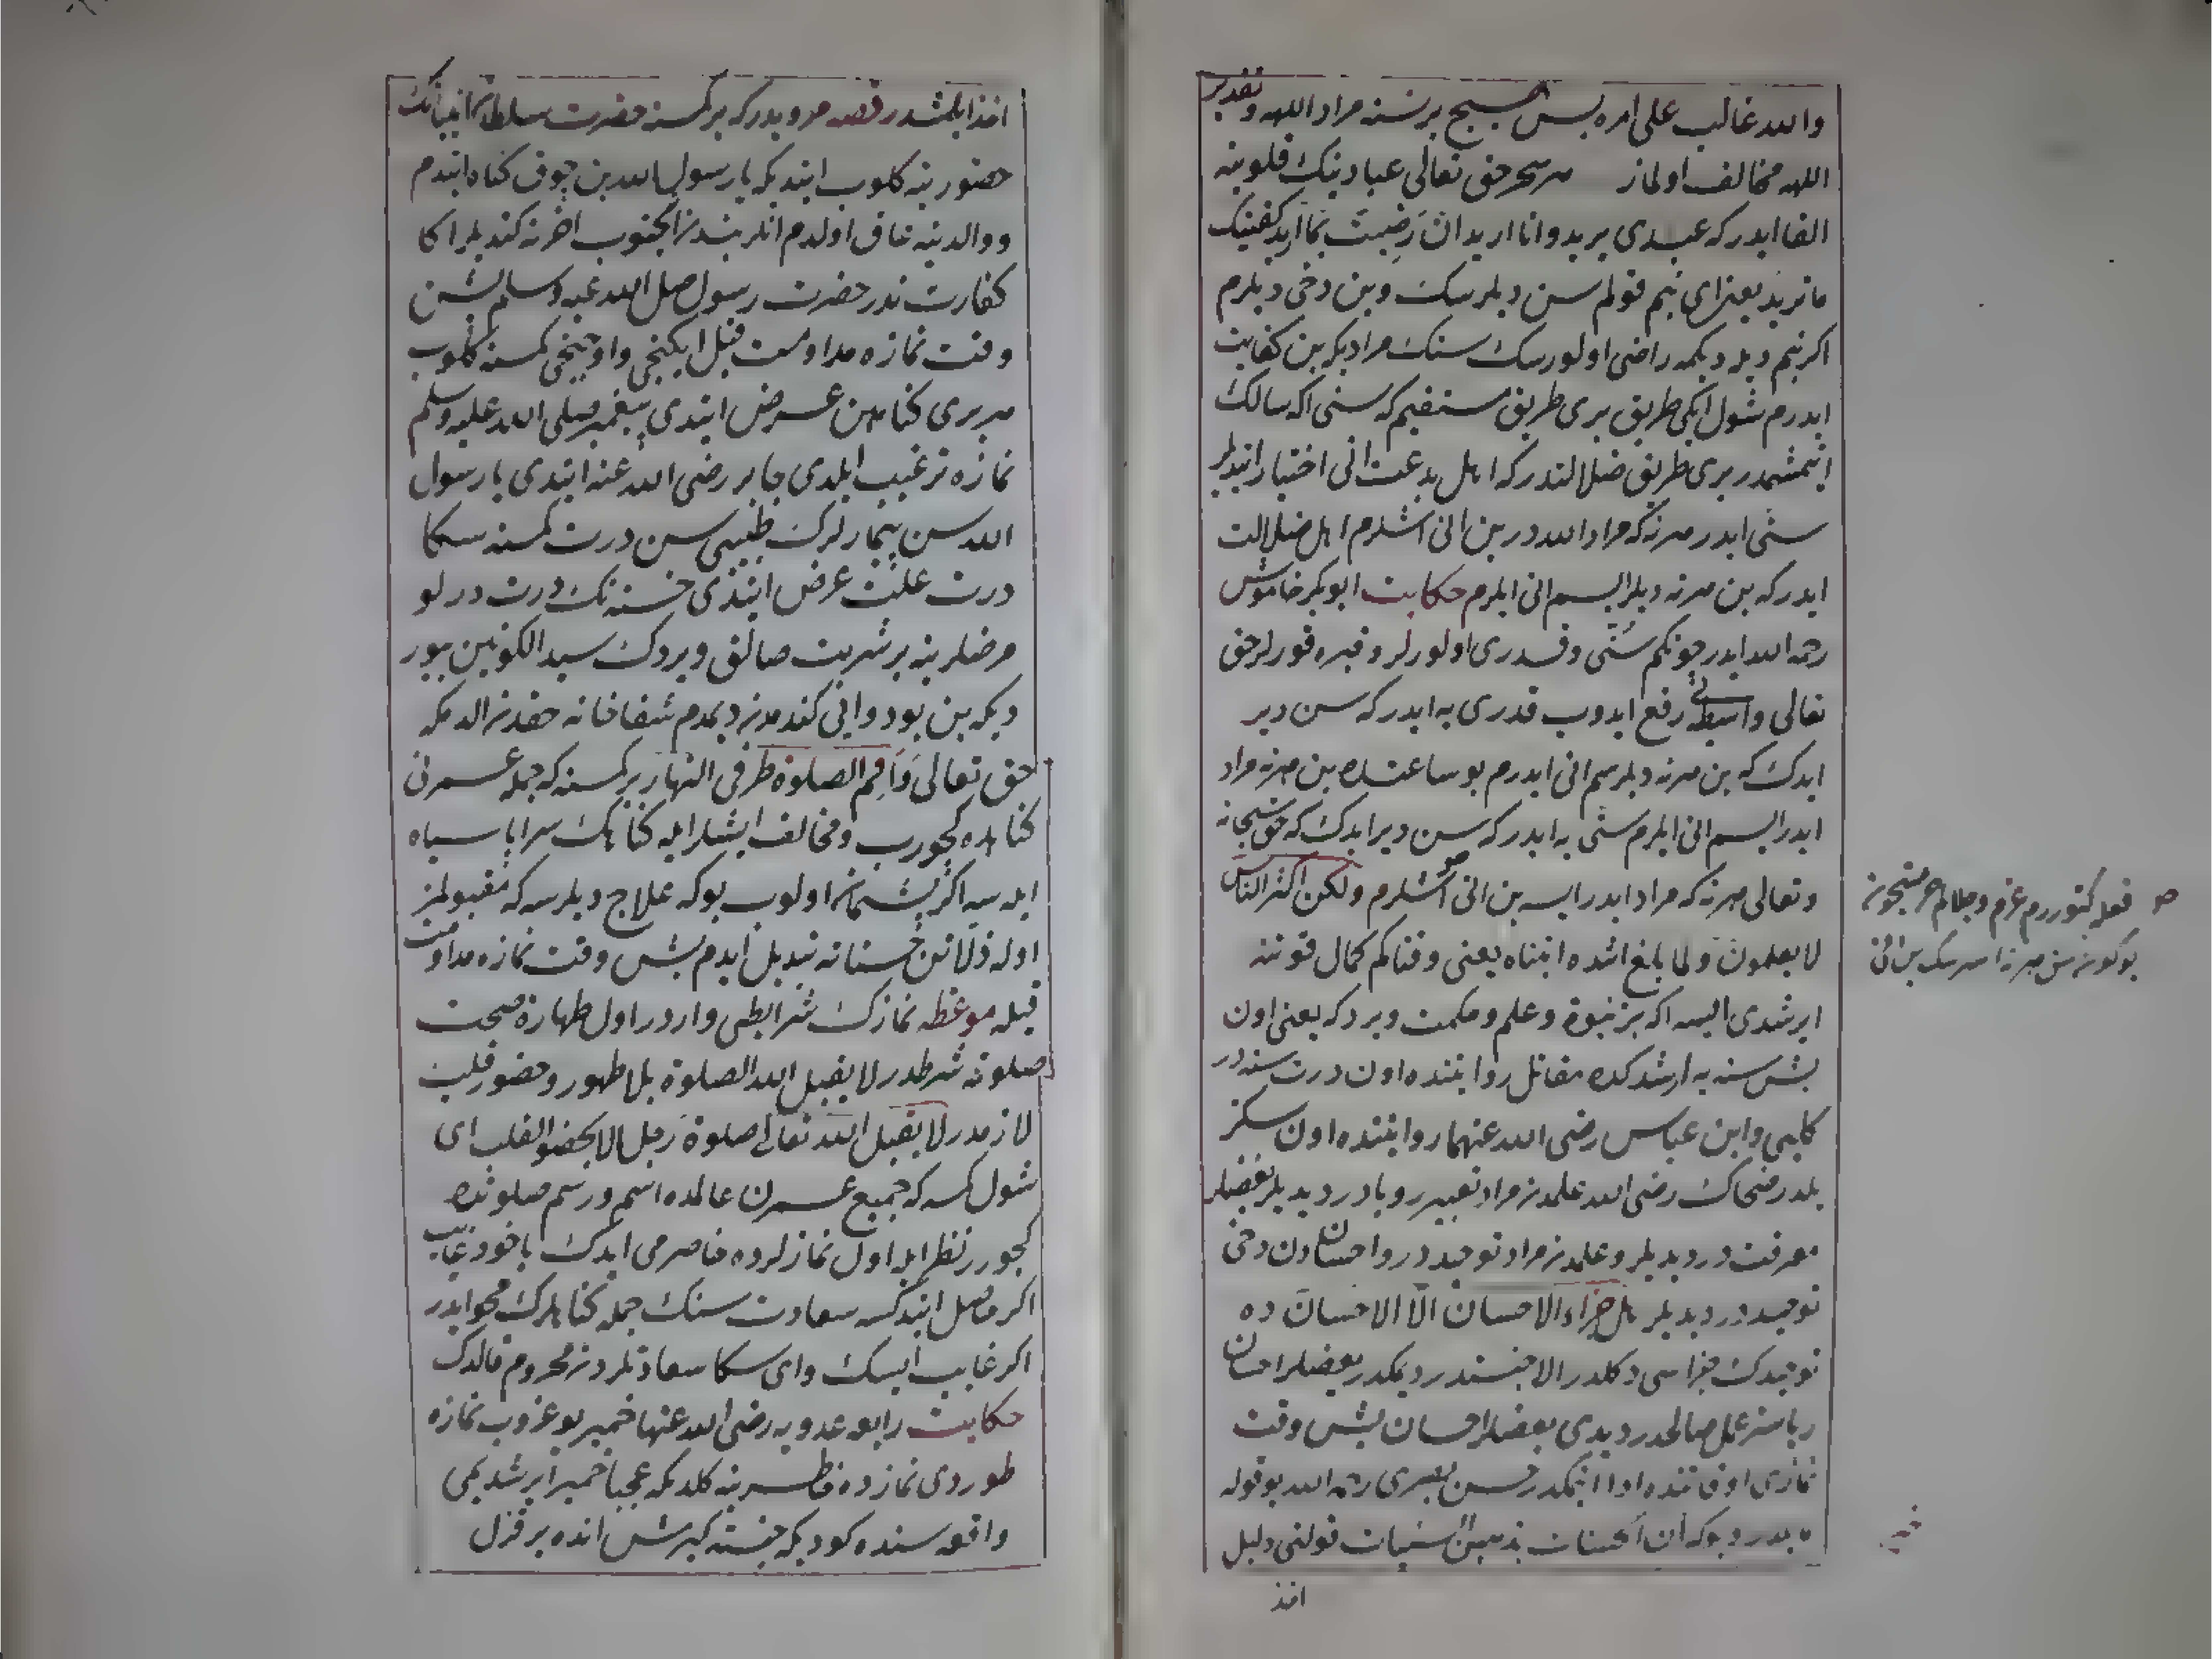 والله غالب علی امره بس هیچ بر نسنه مراد اللهه و تقدیر
اللهه مخالف اولماز حق تعالی عبادینک قلوبنه
القا ایدر که عبدی یرید وانا ارید ان رضیت بما ارید کفیتک
ما ترید یعنی ای بنم قولم سن دیلرسک وبن دخی دیلرم
اکر بنم دیلدیکمه راضی اولورسک سنک مرادیکه بن کفایت
ایدرم شول ایکی طریق بری طریق مستقیم که سنی اکه سالک
ایتمشمدر بری طریق ضلالتدر که اهل بدعت انی اختیار ایتدیلر
سنی ایدر هر نه که مراد الله در بن انی اشلرم اهل ضلالت
ایدر که بن هر نه دیلرایسم انی ایلرم حکایت ابو بکر خاموش
رحمه الله ایدر چونکم سنی و قدری اولورلر و قبره قورلر حق
تعالی واسطه‌یی رفع ایدوب قدری یه ایدر که سن دیر
ایدک که بن هر نه دیلرسم انی ایدرم بو ساعتده بن هر نه مراد
ایدرایسم انی ایلرم سنی یه ایدر که سن دیر ایدک که حق سبحانه
وتعالی هر نه که مراد ایدرایسه بن انی اشلرم ولکن اکثر الناس
لا یعلمون ولما بلغ اشده اتیناه یعنی وقتاکم کمال قوتنه
ایرشدی ایسه اکه بز نبوة و علم و حکمت ویردک یعنی اون
بش سنه یه ایرشدکده مقاتل روایتنده اون درت سنه در
کلبی وابن عباس رضی الله عنهما روایتنده اون سکز
یلدر ضحاک رضی الله علمدن مراد تعبیر رویادر دیدیلر بعضلر
معرفت در دیدیلر و علمدن مراد توحید در واحساندن دخی
توحید در دیدیلر هل جزاء الاحسان الا الاحسان ده
توحیدک جزاسی دکلدر الا جنتدر دیمکدر بعضلر احسان
ریاسز عمل صالحدر دیدی بعضلر احسان بش وقت
نمازی اوقاتنده ادا ایتمکدر حسن بصری رحمه الله بو قوله
دیبوکه ان الحسنات یذهبن السیئات قولنی دلیل
اخذ
فعل کتوررم عزم
بو کون سن هر نه بن انی
اخذ ایلمشدر قصه مرویدر که بر کمسنه حضرت سلطان انبیانک
حضورینه کلوب ایتدیکه یا رسول الله بن چوق کناه ایتدم
ووالدینه عاق اولدم انلر بندن انجنوب اخرته کتدیلر اکا
کفارت ندر حضرت رسول صلی الله علیه وسلم بش
وقت نمازه مداومت قیل ایکنجی واوچنجی کمسنه کلوب
هر بری کناهن عرض ایتدی پیغمبر صلی الله علیه وسلم
نمازه ترغیب ایلدی جابر رضی الله عنه ایتدی یا رسول
الله سن بیمارلرک طبیبی سن درت کمسنه سکا
درت علت عرض ایتدی خسته نک درت درلو
مرضلرینه بر شربت صالق ویردک سید الکونین بیور
دیکه بن بو دوایی کندمدن دیمدم شفاخانه حقدن الدمکه
حق تعالی واقم الصلوة طرفی النهار بر کمسنه که جمله عمرنی
کناهده کچورب ومخالف ایشلر ایله کناهک سراپا سیاه
ایلسه اکر پشیمان اولوب بوکه علاج دیلرسه که مقبولمز
اوله ذلاتن حسناته تبدیل ایدم بش وقت نمازه مداومت
قیله موعظه نمازک شرایطی واردر اول طهارة صحت
صلوته شرطدر لا یقبل الله الصلوة بلا طهور وحضور قلب
لازمدر لا یقبل الله تعالی صلوة رجل الا بحضور القلب ای
شول کمسه که جمیع عمرن عالمده اسم ورسم صلوتده
کچورر نظر ایله اول نمازلرده حاضرمی ایدک یاخود غایب
اکر حاضر ایتدکسه سعادت سنک جمله کناهلرک محو ایدر
اکر غایب ایسک وای سکا سعادتلردن محروم قالدک
حکایت رابعه عدویه رضی الله عنها خمیر یوغروب نمازه
طوردی نمازده خاطرینه کلدیکه عجبا خمیر ایرشدیمی
واقعه سنده کوردیکه جنته کیرمش انده بر قزل